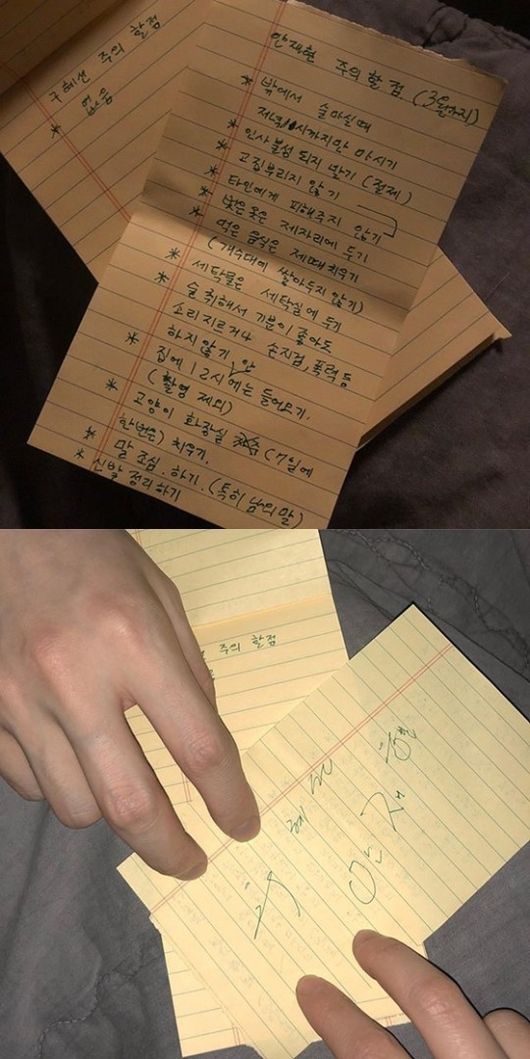 구혜선 주의 할점
* 없음
안재현 주의 할 점 (3월까지)
* 밖에서 술마실때
저녁 시까지만 마시기
* 인사불성 되지 말기 (절제)
* 고집부리지 않기
* 타인에게 피해주지 않기
* 벗은 옷은 제자리에 두기
* 먹은 음식은 제때 치우기
(개수대에 쌓아두지 않기)
* 세탁물은 세탁실에 두기
* 술 취해서 기분이 좋아도
소리 지르거나 손지검, 폭력 등
하지 않기 안
* 집에 12시에는 들어오기.
(촬영 제외)
* 고양이 화장실 (7일에
한번은) 치우기.
* 말 조심. 하기. (특히 남의 말)
* 신발 정리하기
주의 할점
구혜선
안재현